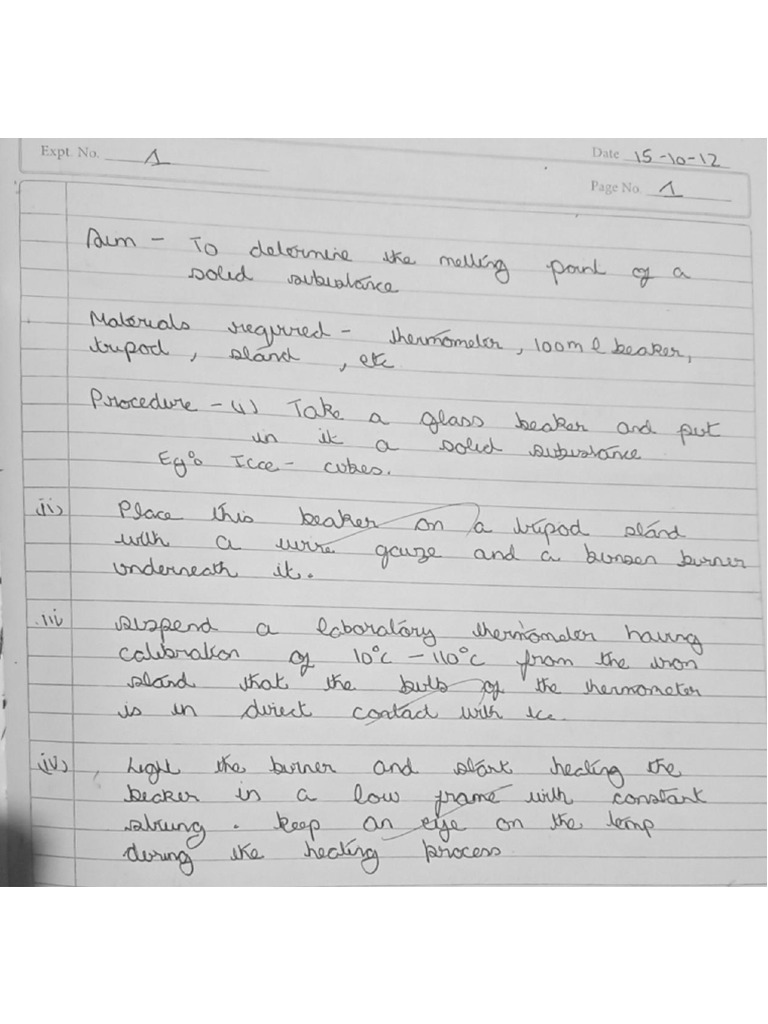 Expt. No. 1
Date 15-10-12
Page No. 1
Aim - To determine the melting point of a
solid substance
Materials required - thermometer, 100ml beaker,
tripod, stand, etc
Procedure - (i) Take a glass beaker and put
in it a solid substance
Eg: Icce - cubes.
(ii) Place this beaker on a tripod stand
with a wire gauze and a bunsen burner
underneath it.
iii suspend a laboratory thermometer having
calibration of 10°c - 110°c from the iron
stand that the bulb of the thermometer
is in direct contact with ice.
(iv) Light the burner and start heating the
beaker in a low frame with constant
string. keep an eye on the temp
during the heating process